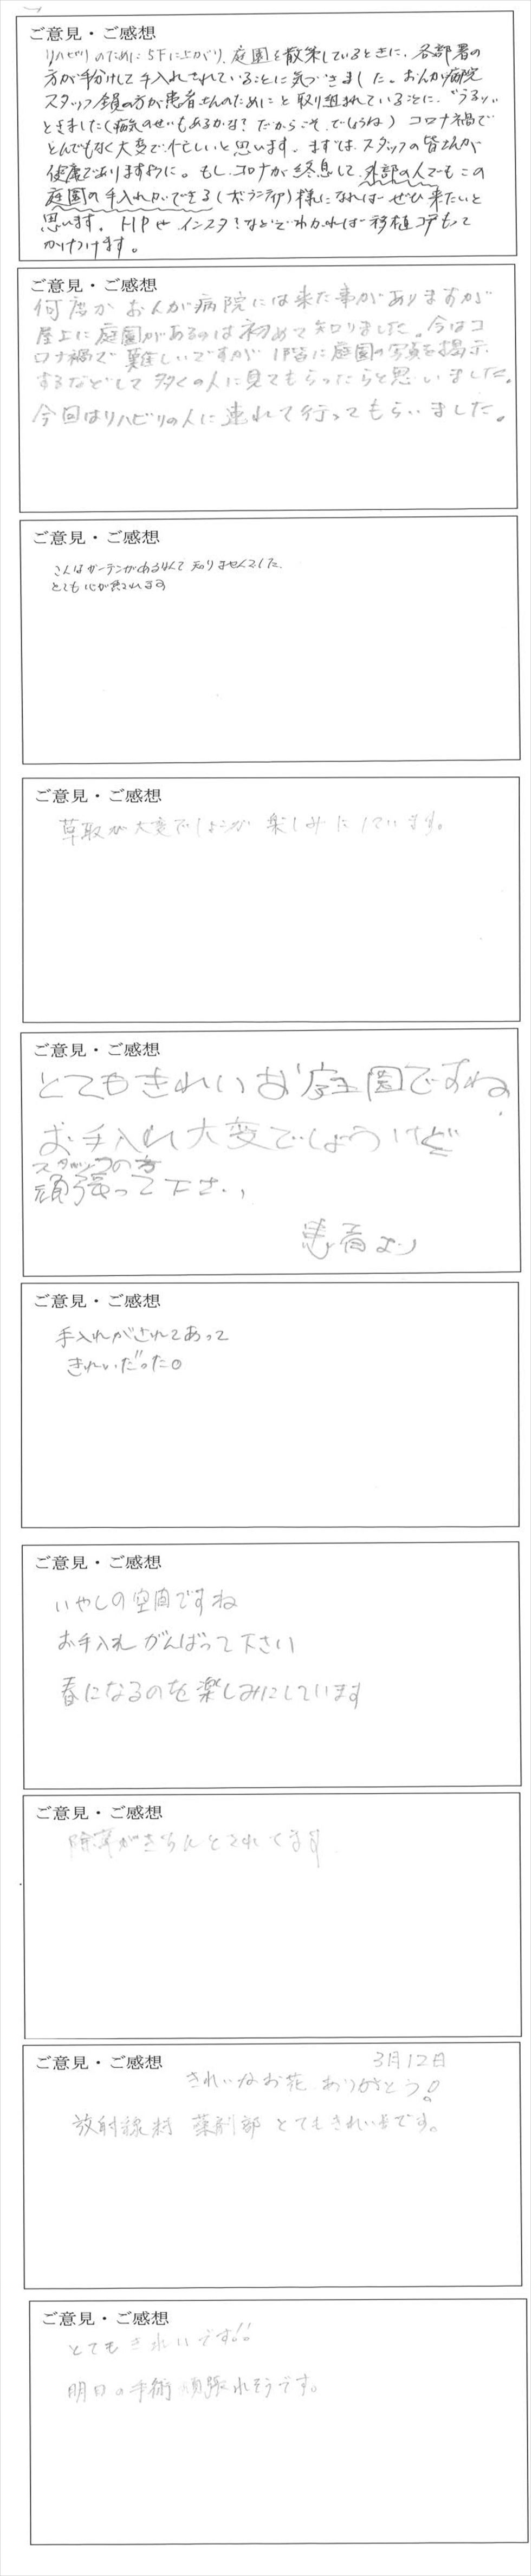 ご意見・ご感想
リハビリのために5Fに上がり、庭園を散策しているときに、各部署の
方が手分けして手入れされていることに気づきました。おんが病院
スタッフ全員の方が患者さんのためにと取り組まれていることに、"うるッ"
ときました(病気のせいもあるかな?だからこそ、でしょうね)コロナ禍で
とんでもなく大変で忙しいと思います。まずは、スタッフの皆さんが
健康でありますように。もし、コロナが終息して、外部の人でもこの
庭園の手入れができる(ボランティア)様になれば ぜひ来たいと
思います。HPやインスタ!などでわかれば移植ゴテもって
かけつけます。
ご意見・ご感想
何度かおんが病院には来た事がありますが
屋上に庭園があるのは初めて知りました。今はコ
ロナ禍で難しいですが 1階に庭園の写真を掲示
するなどして多くの人に見てもらったらと思いました。
今回はリハビリの人に連れて行ってもらいました。
ご意見・ご感想
こんなガーデンがあるなんて知りませんでした。
とても心が癒されます
ご意見・ご感想
草取が大変でしょうが 楽しみにしています。
ご意見・ご感想
とてもきれいなお庭園ですね
お手入れ大変でしょうけど
スタッフの方
頑張って下さい
患者より
ご意見・ご感想
手入れがされてあって
きれいだった。
ご意見・ご感想
いやしの空間ですね
お手入れがんばって下さい
春になるのを楽しみにしています
ご意見・ご感想
除草がきちんとされてます
ご意見・ご感想
3月12日
きれいなお花 ありがとう!
放射線科 薬剤部 とてもきれいです。
ご意見・ご感想
とてもきれいです!!
明日の手術頑張れそうです。